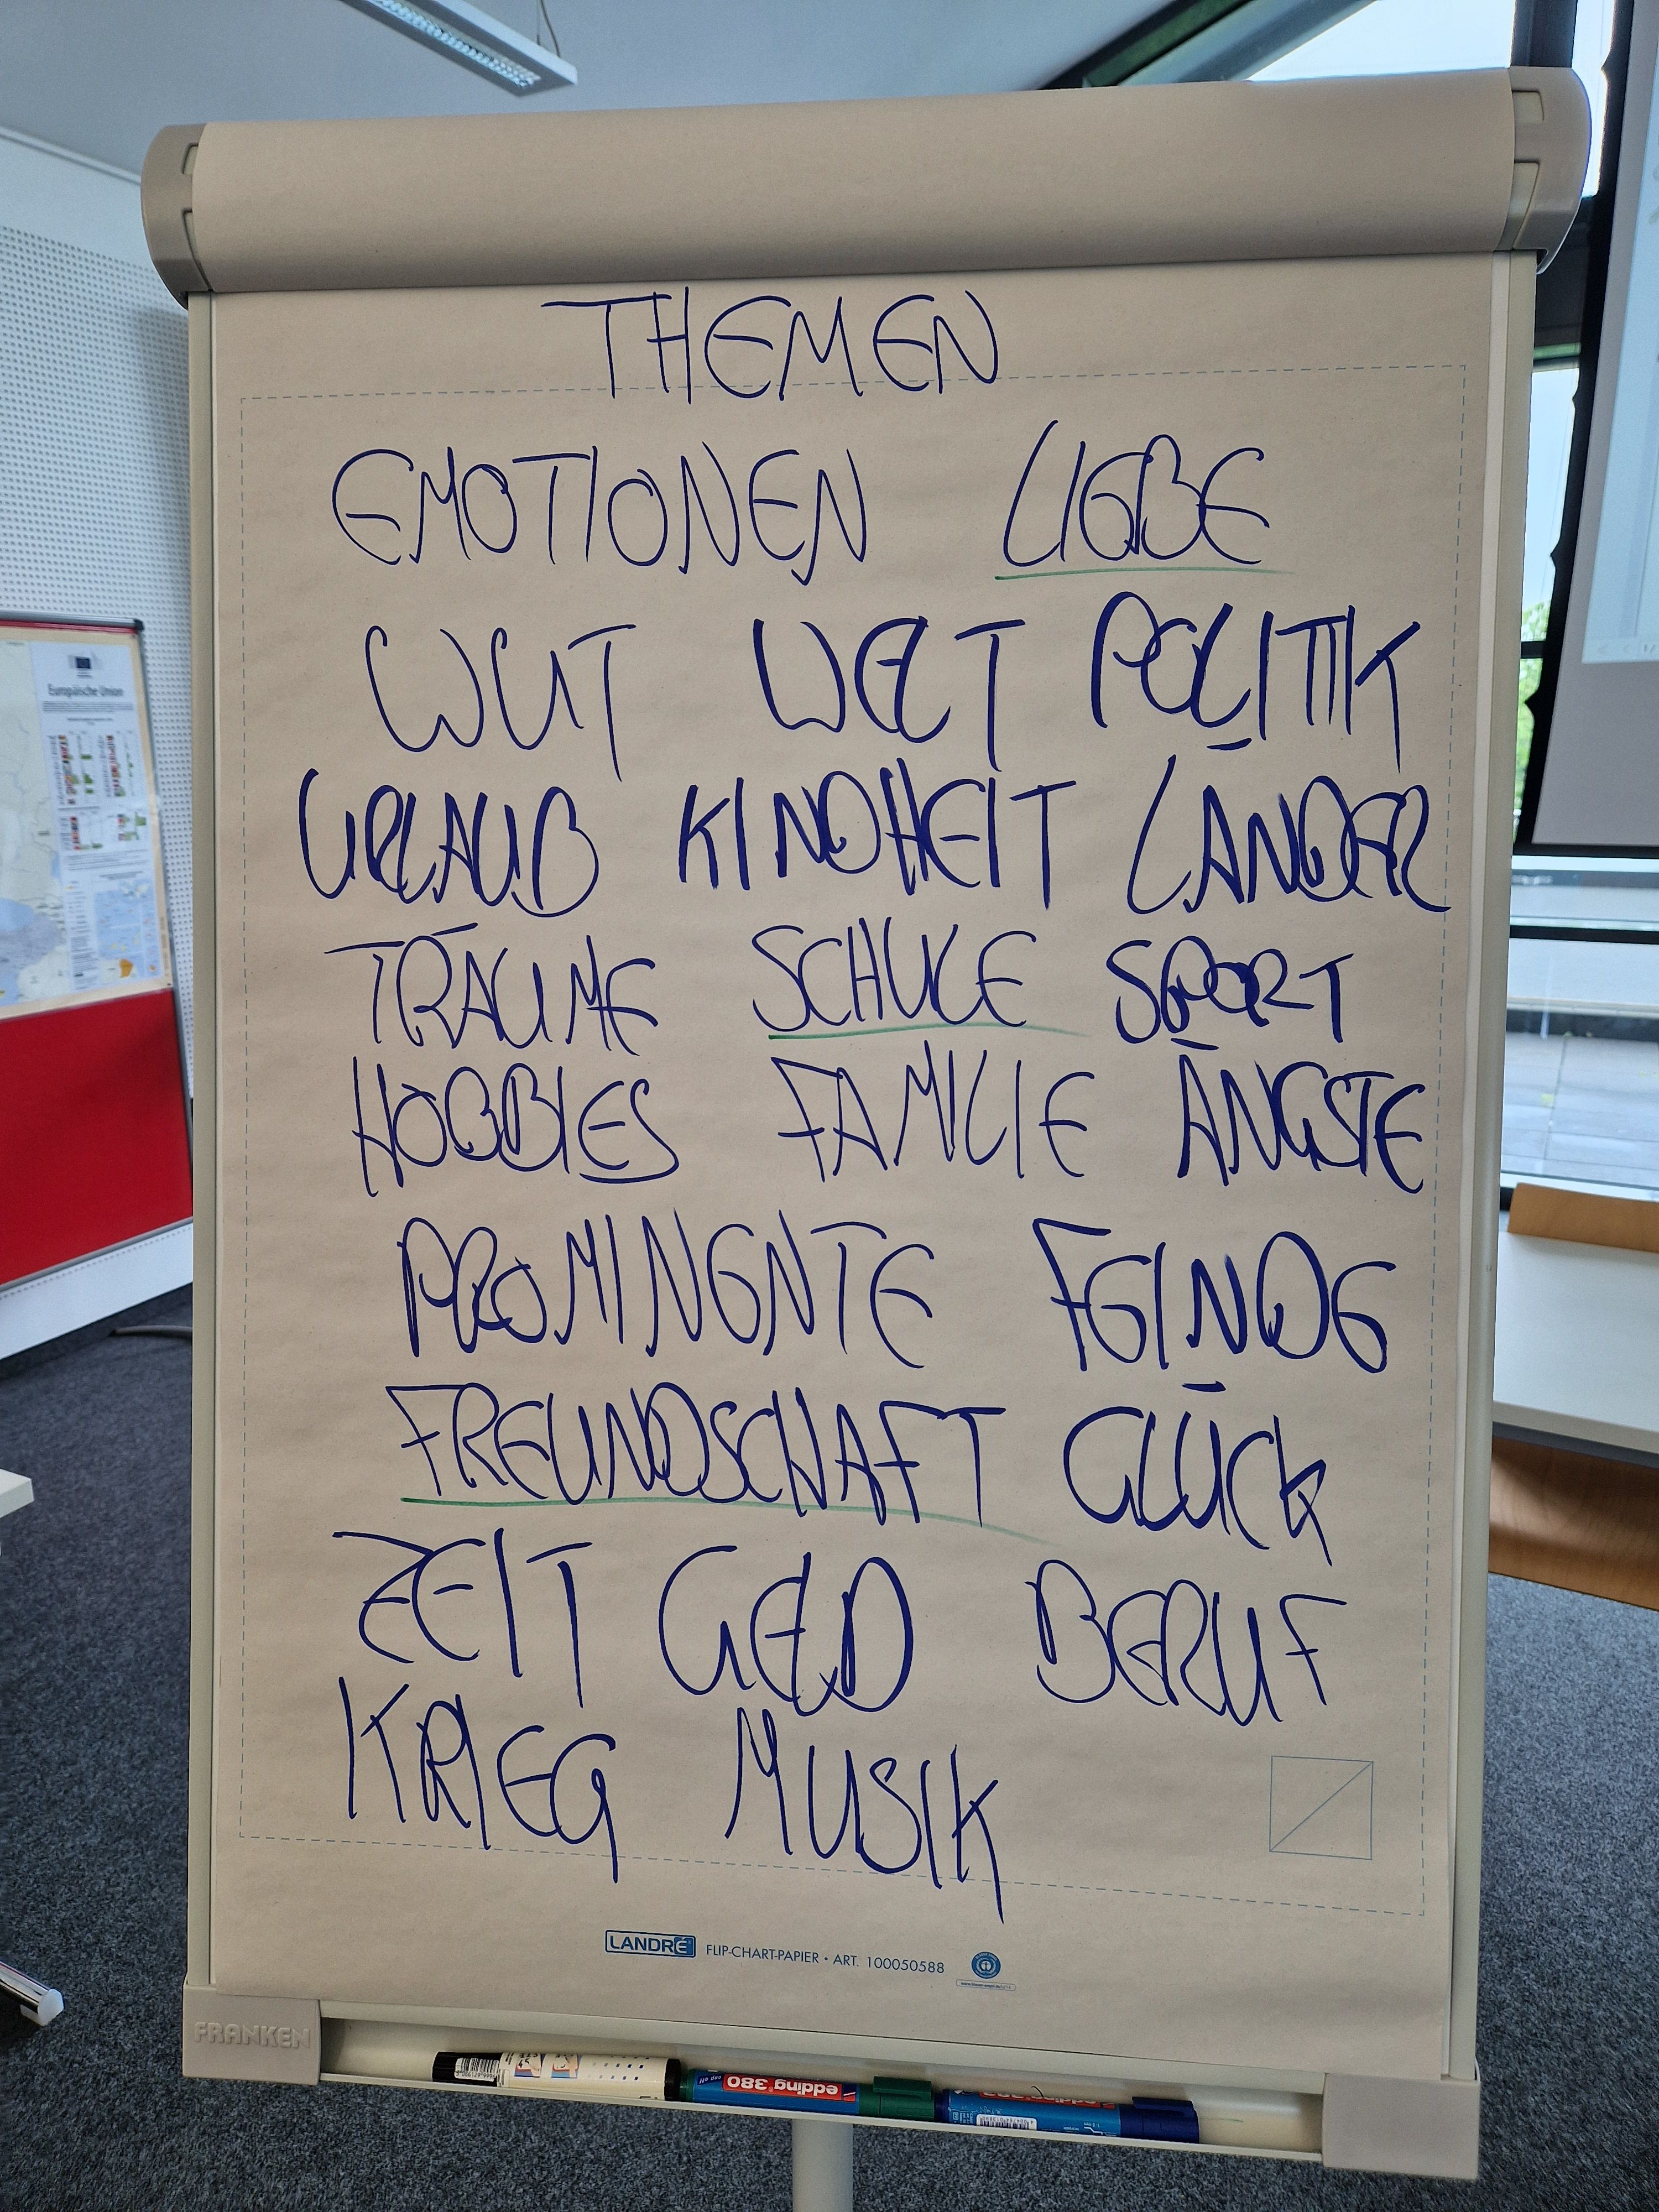 THEMEN
EMOTIONEN LIEBE
WUT WELT POLITIK
URLAUB KINDHEIT LÄNDER
TRÄUME SCHULE SPORT
HOBBIES FAMILIE ÄNGSTE
PROMINENTE FEINDE
FREUNDSCHAFT GLÜCK
ZEIT GELD BERUF
KRIEG MUSIK
LANDRÉ FLIP-CHART-PAPIER • ART. 100050588
FRANKEN
edding 380
Europäische Union